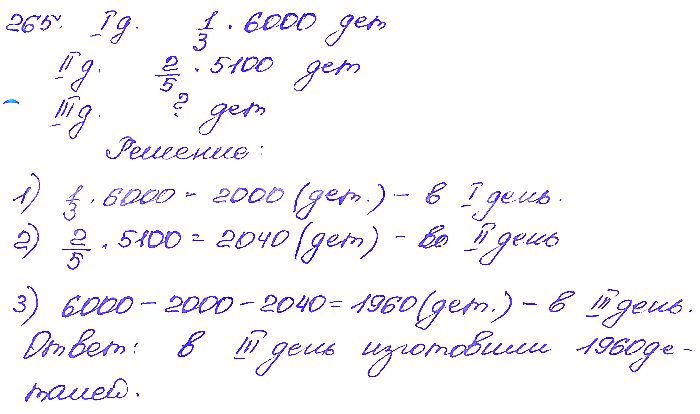 265. I д. 1/3 · 6000 дет
II д. 2/5 · 5100 дет
III д. ? дет
Решение:
1) 1/3 · 6000 = 2000 (дет.) – в I день.
2) 2/5 · 5100 = 2040 (дет) – во II день
3) 6000 – 2000 – 2040 = 1960 (дет.) – в III день.
Ответ: в III день изготовили 1960 де-
талей.